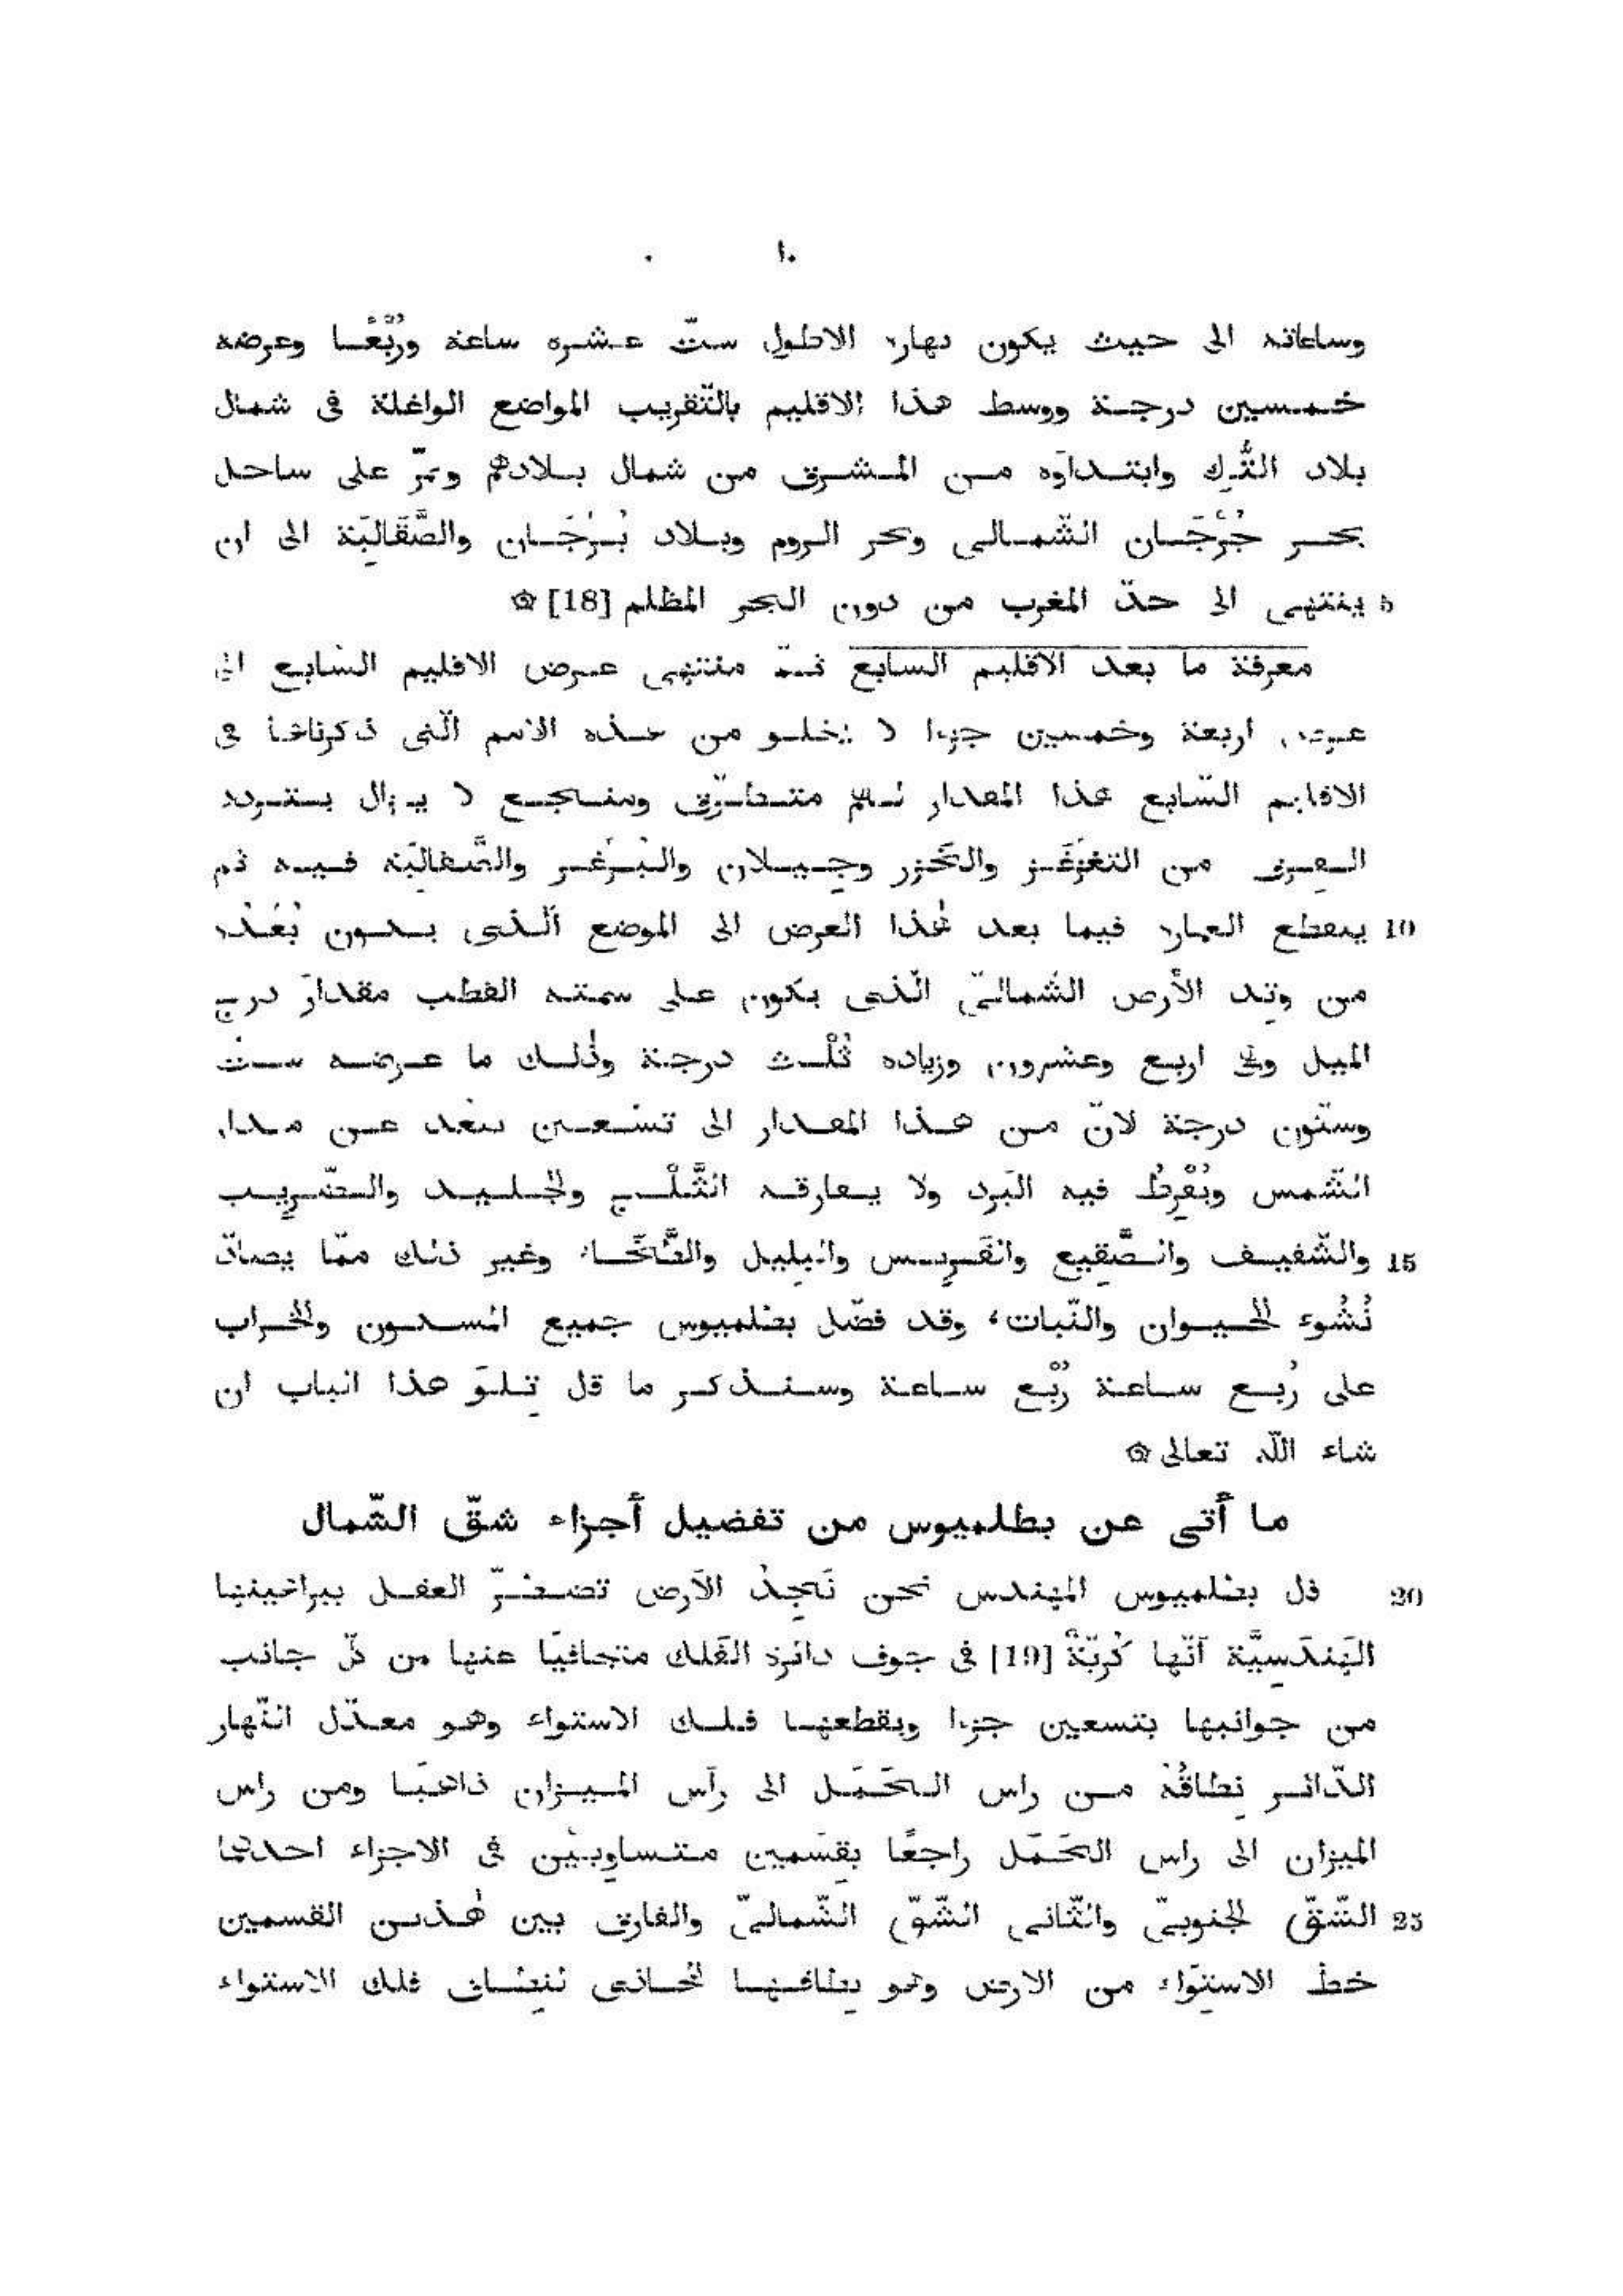 ١٠
وساعاته الى حيث يكون نهاره الاطول ستّ عشرة ساعة ورُبْعًا وعرضه
خمسين درجة ووسط هذا الاقليم بالتّقريب المواضع الواغلة فى شمال
بلاد التُّرك وابتداؤه من المشرق من شمال بلادهم ويمرّ على ساحل
بحر جُرْجَان الشّمالى وبحر الروم وبلاد بُرْجَان والصَّقَالِبَة الى ان
5 ينتهى الى حدّ المغرب من دون البحر المظلم [18] ۞
معرفة ما بعد الاقليم السابع ثمّ منتهى عرض الاقليم السّابع الى
عرض اربعة وخمسين جزءا لا يخلو من هذه الامم الّتى ذكرناها فى
الاقليم السّابع هذا المقدار لهم متطرّق ومنتجع لا يزال يتردد
الفرق من التغزغز والخَزر وجيلان والبُرْغر والصَّقالِبَة فيه ثم
10 ينقطع العمار فيما بعد هٰذا العرض الى الموضع الّذى يكون بُعْدُه
من وتِد الأرض الشّمالىّ الّذى يكون على سمته القطب مقدارَ درج
الميل وهى اربع وعشرون وزيادة ثُلْث درجة وذٰلك ما عرضه ستّ
وستّون درجة لانّ من هذا المقدار الى تسْعين يبْعد عن مدار
الشّمس ويُفْرِطُ فيه البَرد ولا يفارقه الثَّلْج والجليد والضّرِيب
15 والشّفيف والصَّقِيع والقَرِيس والبِليل والطَّخَاء وغير ذلك ممّا يضادّ
نُشُوء الحيوان والنّبات، وقد فصّل بطلميوس جميع المسكون والخراب
على رُبع ساعة رُبْع ساعة وسنذكر ما قال تِلوَ هذا الباب ان
شاء اللّه تعالى ۞
ما أتى عن بطلميوس من تفضيل أجزاء شقّ الشّمال
20 قال بطلميوس المهندس نحن نَجِدُ الأرض تضطرّ العقل ببراهينها
الهَندَسِيَّة أنّها كُرِيّةٌ [19] فى جوف دائرة الفَلك متجافيًا عنها من كلّ جانب
من جوانبها بتسعين جزءا ويقطعها فلك الاستواء وهو معدّل النّهار
الدّائر نِطاقُهُ من راس الحَمَل الى رأس الميزان ذاهبًا ومن راس
الميزان الى راس الحَمَل راجعًا بِقسْمين متساويَيْن فى الاجزاء احدهما
25 الشّقّ الجنوبىّ والثّانى الشّقّ الشّمالىّ والفارق بين هٰذين القسمين
خطّ الاستِوَاء من الارض وهو نِطاقها المحاذى لنِطاق فلك الاستواء